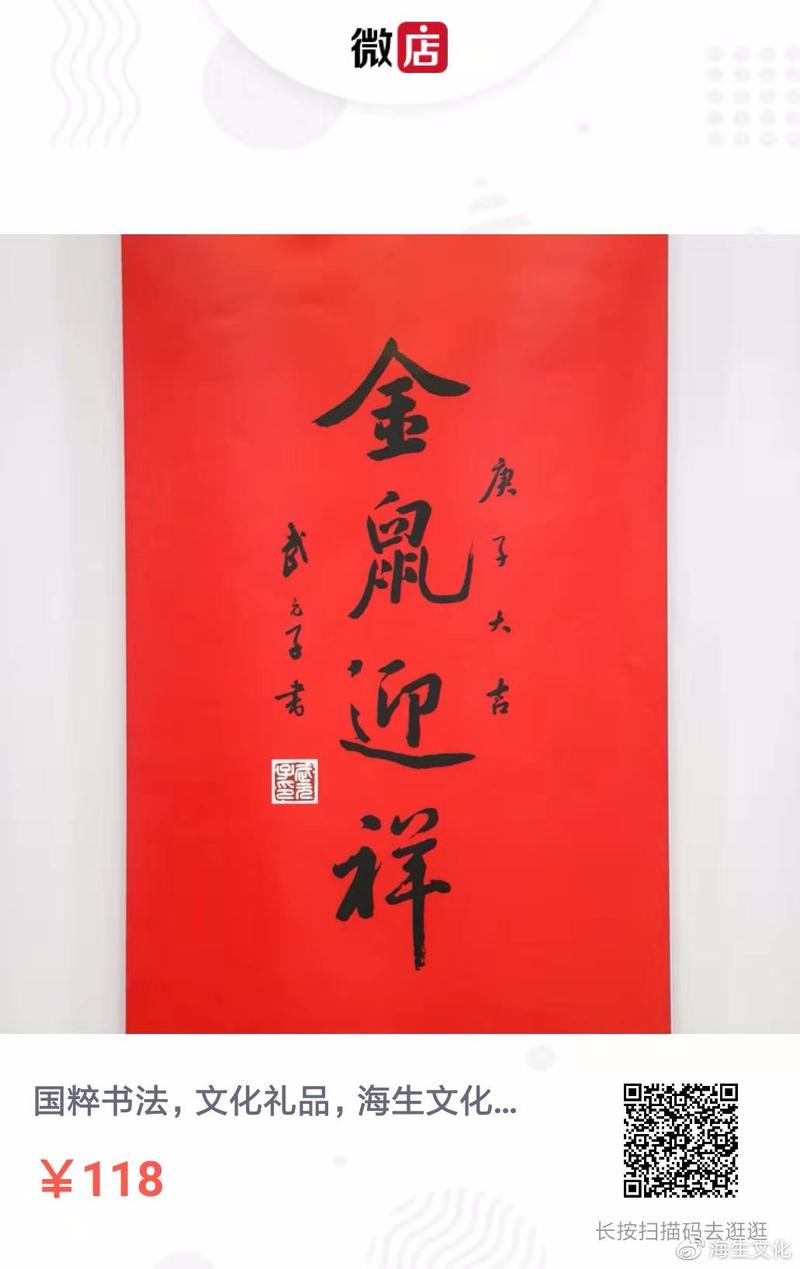 微店
庚子大吉
金鼠迎祥
武元子书
武元子印
国粹书法，文化礼品，海生文化...
￥118
长按扫描码去逛逛
海生文化